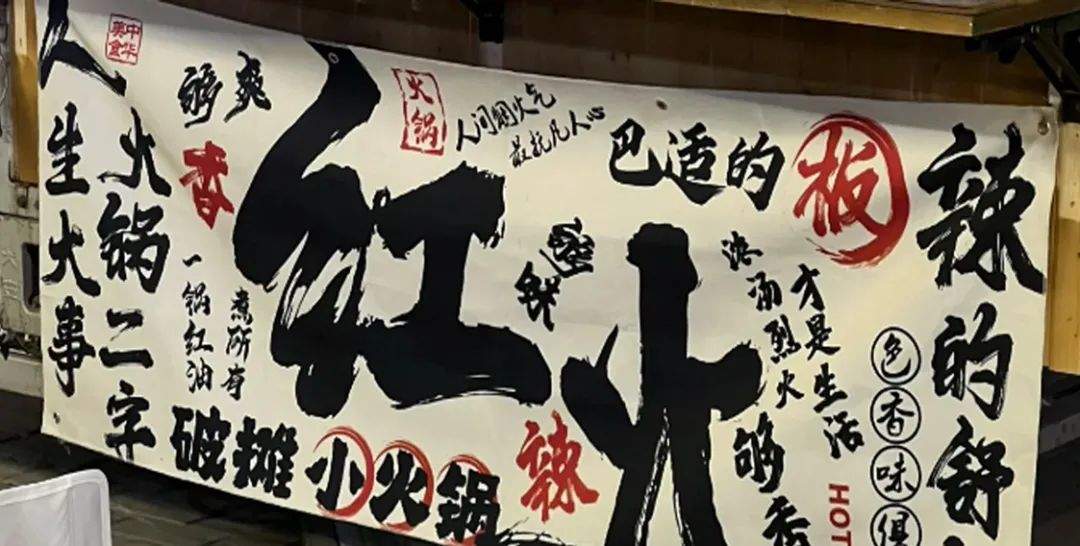 人生火事
火锅二字
中华美食
够爽
香
一锅红油
煮所有
破摊
小火锅
红火
火锅
人间烟火气
最抚凡人心
辣
巴适的板
滚汤烈火
才是生活
够香
HOT
色香味俱
辣的舒